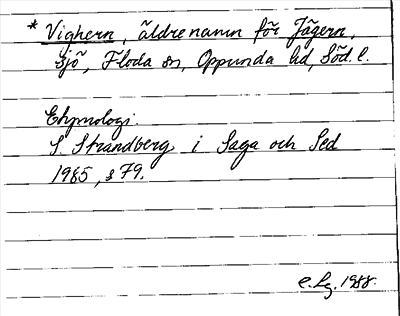 * Vighern, äldre namn för Jägern,
sjö, Floda sn, Oppunda hd, Söd. l.
Etymologi.
S. Strandberg i Saga och Sed
1985, s 79.
C. Lg. 1988.